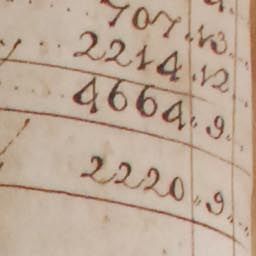 707.13
2214.12
4664.9
2220.9